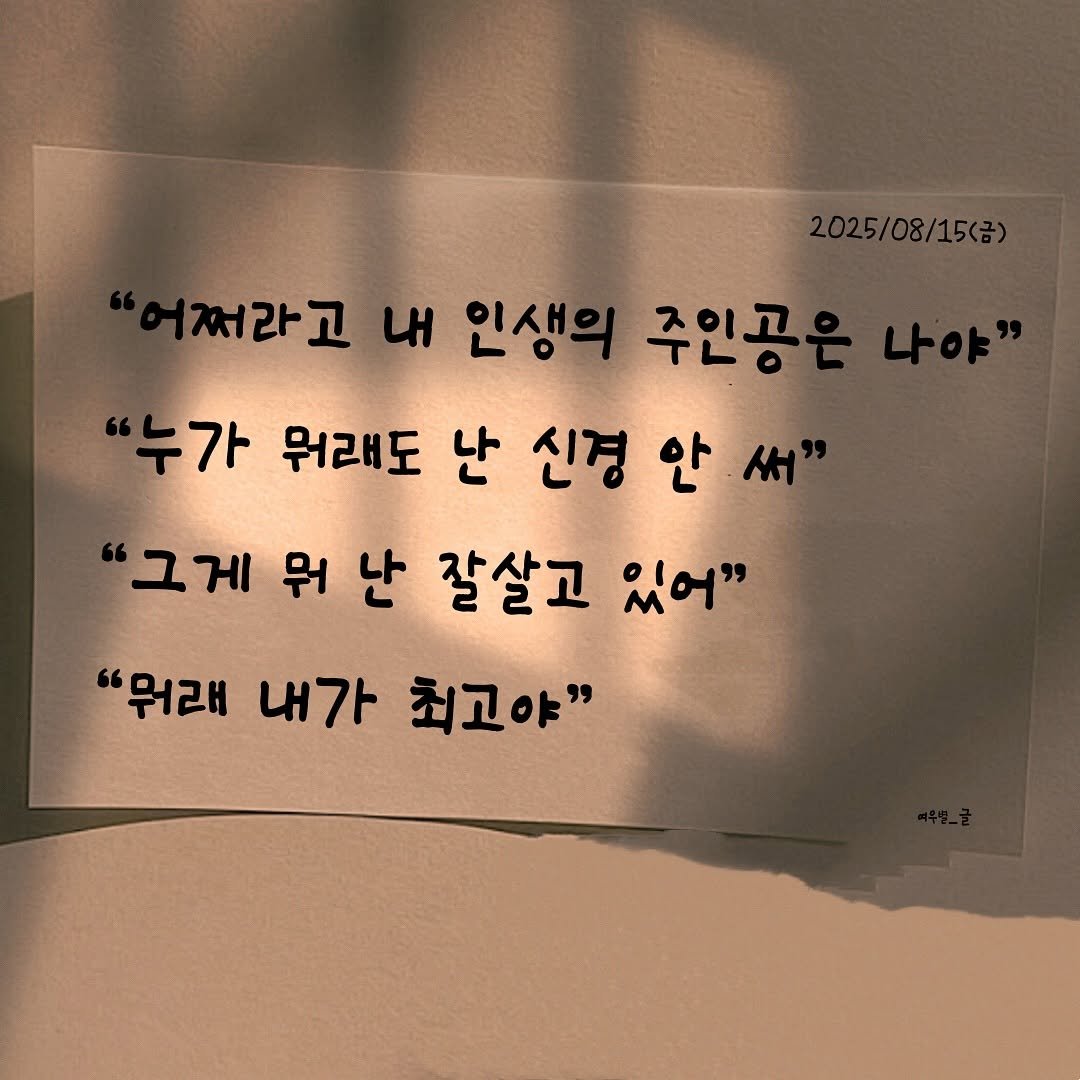 2025/08/15(금)
“어쩌라고 내 인생의 주인공은 나야”
“누가 뭐래도 난 신경 안 써”
“그게 뭐 난 잘살고 있어”
“뭐래 내가 최고야”
여우별_글